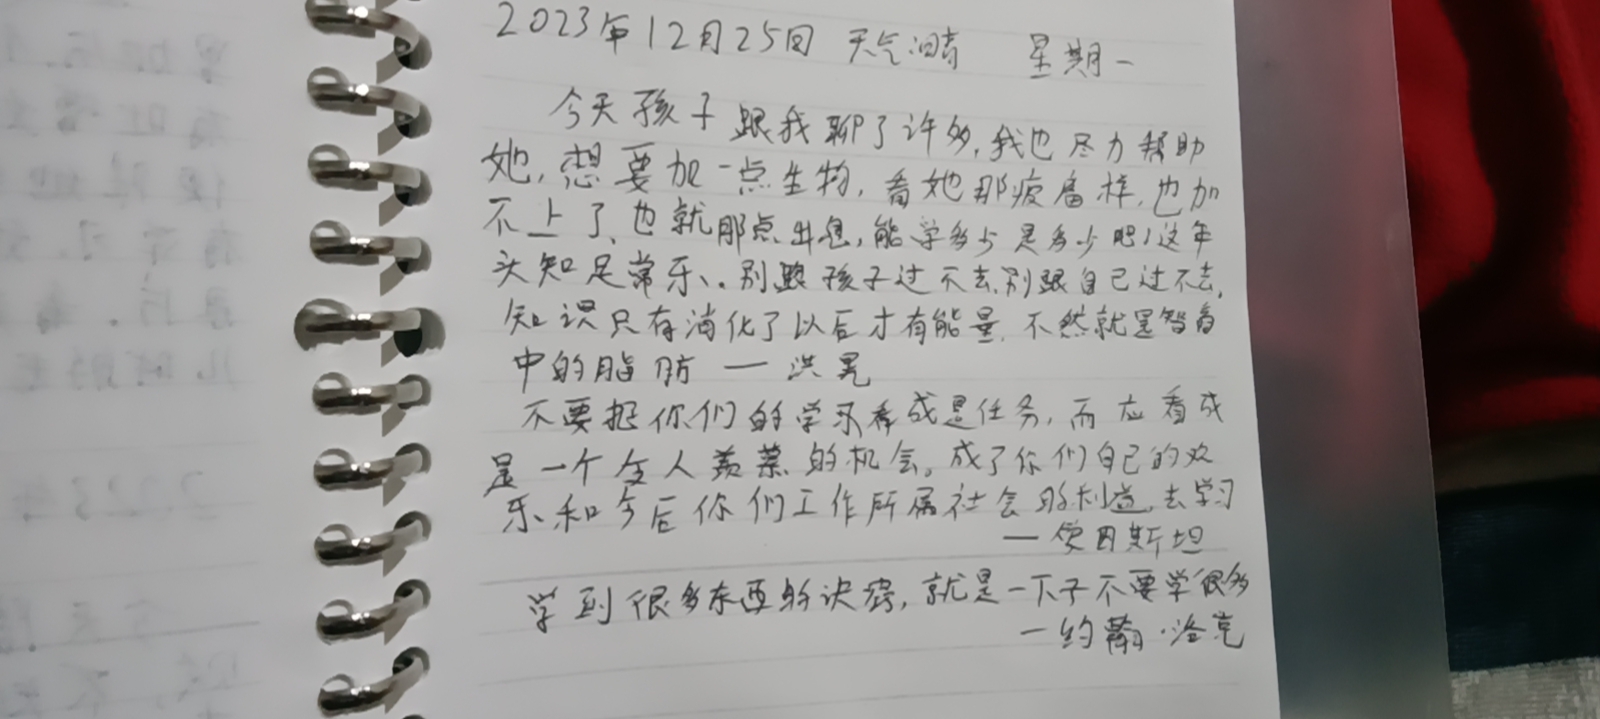 2023年12月25日 天气晴 星期一
今天孩子跟我聊了许多,我也尽力帮助
她,想要加一点生物,看她那疲惫样,也加
不上了、也就那点出息,能学多少是多少吧!这年
头知足常乐、。别跟孩子过不去,别跟自己过不去,
知识只有消化了以后才有能量,不然就是智者
中的脂肪 — 洪晃
不要把你们的学习看成是任务,而应看成
是一个令人羡慕的机会。成了你们自己的欢
乐和今后你们工作所属社会的利益,去学习
—爱因斯坦
学到很多东西的诀窍,就是一下子不要学很多
—约翰·洛克